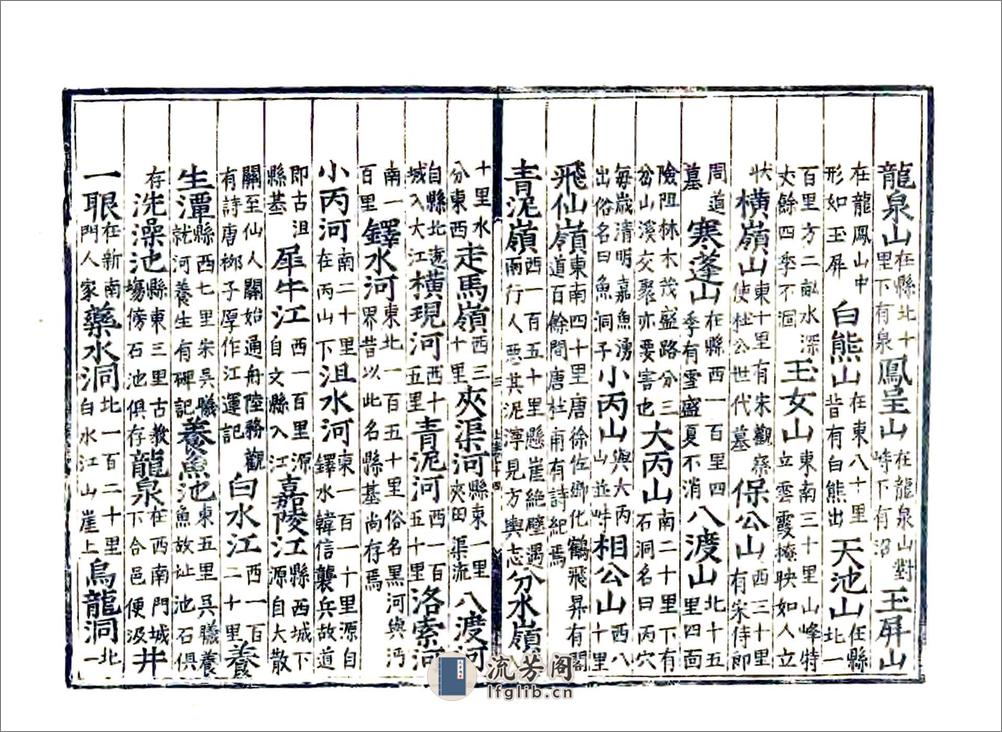 龍泉山在縣北十里下有泉鳳呈山在龍泉山對峙下有沼玉屏山
在龍鳳山中形如玉屏白熊山在東八十里昔有白熊出天池山在縣北一
百里方二畝水深丈餘四季不涸玉女山東南三十里山峰特立雲霞掩映如人立
狀橫嶺山東十里有宋觀察使杜公世代墓保公山西三十里有宋侍郎
周道墓寒蓬山在縣西一百里四季有雪盛夏不消八渡山北十五里四面
險阻林木茂盛路分三岔山溪交聚亦要害也大丙山南二十里下有石洞名曰丙穴
每歲清明嘉魚湧出俗名曰魚洞子小丙山與大丙山並峙相公山西八十里
飛仙嶺東南四十里唐徐佐卿化鶴飛昇有閣道百餘間唐杜甫有詩紀焉
青泥嶺西一百五十里懸崖絕壁遇雨行人惡其泥濘見方輿志分水嶺
十里水分東西走馬嶺西三十里夾渠河縣東一里夾田渠流八渡河
自縣北遶城入大江橫現河西四十五里青泥河西一百五十里洛索河
南一百里鐸水河東北一百五十里俗名黑河與沔界昔以此名縣基尚存焉
小丙河南二十里在丙山下沮水河東一百一十里源自鐸水韓信襲兵故道
即古沮縣基犀牛江西一百里源自文縣入江嘉陵江縣西城下源自大散
關至仙人關始通舟陸務觀有詩唐柳子厚作江運記白水江西一百二十里養
生潭縣西七里宋吳曦就河養生有碑記養魚池東五里吳曦養魚故址池石俱
存洗澡池縣東三里古教場傍石池俱存龍泉在西南門城下合邑便汲井
一眼在新南門人家藥水洞北一百二十里白水江山崖上烏龍洞北一
流芳阁
lfglib.cn